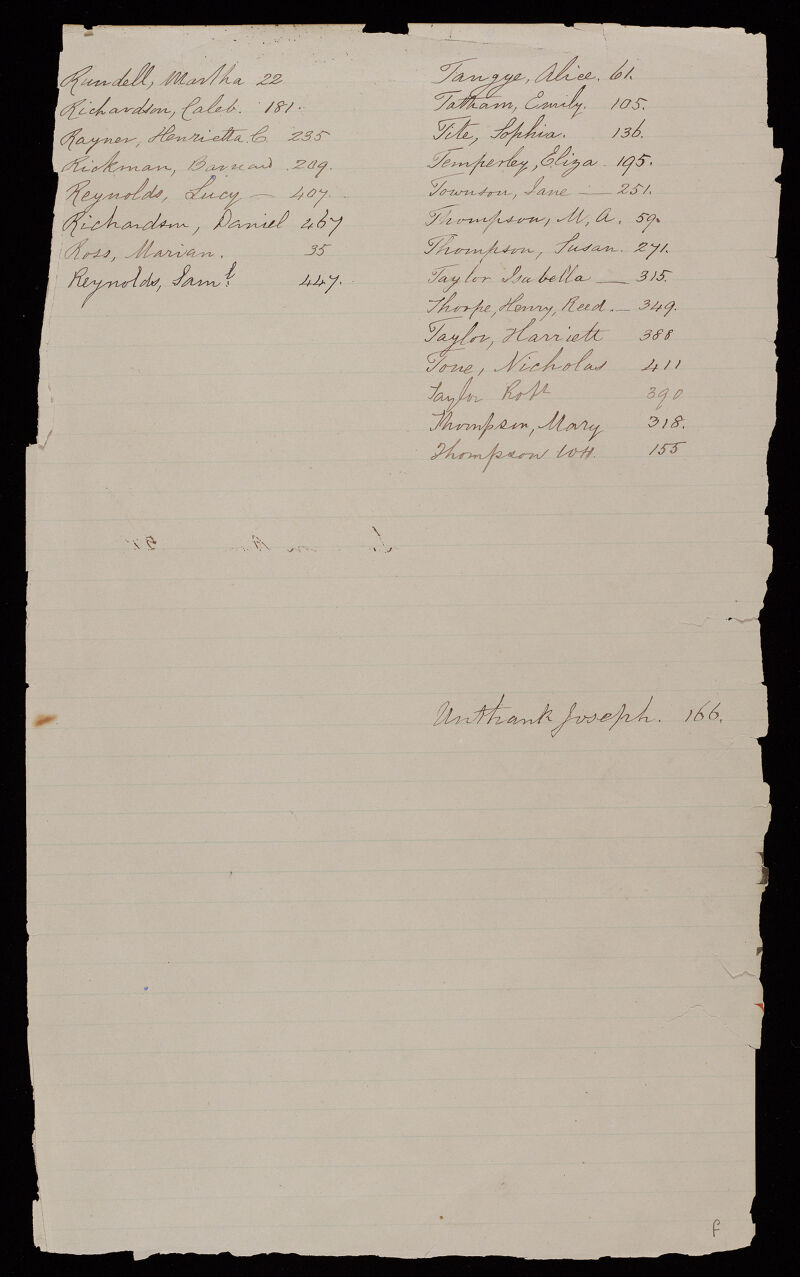 Rundell, Martha 22
Richardson, Caleb. 181.
Rayner, Henrietta C. 235
Rickman, Barnard 209.
Reynolds, Lucy — 407.
Richardson, Daniel 467
Ross, Marian. 35
Reynolds, Saml. 447.
Tangye, Alice. 61.
Tatham, Emily. 105.
Tite, Sophia. 136.
Temperley, Eliza. 195.
Townson, Jane — 251.
Thompson, M, A. 59.
Thompson, Susan. 271.
Taylor Isabella — 315.
Thorpe, Henry, Reed. — 349.
Taylor, Harriett 388
Tone, Nicholas 411
Taylor Robt 390
Thompson, Mary 318.
Thompson WH. 155
Unthank Joseph. 166.
f